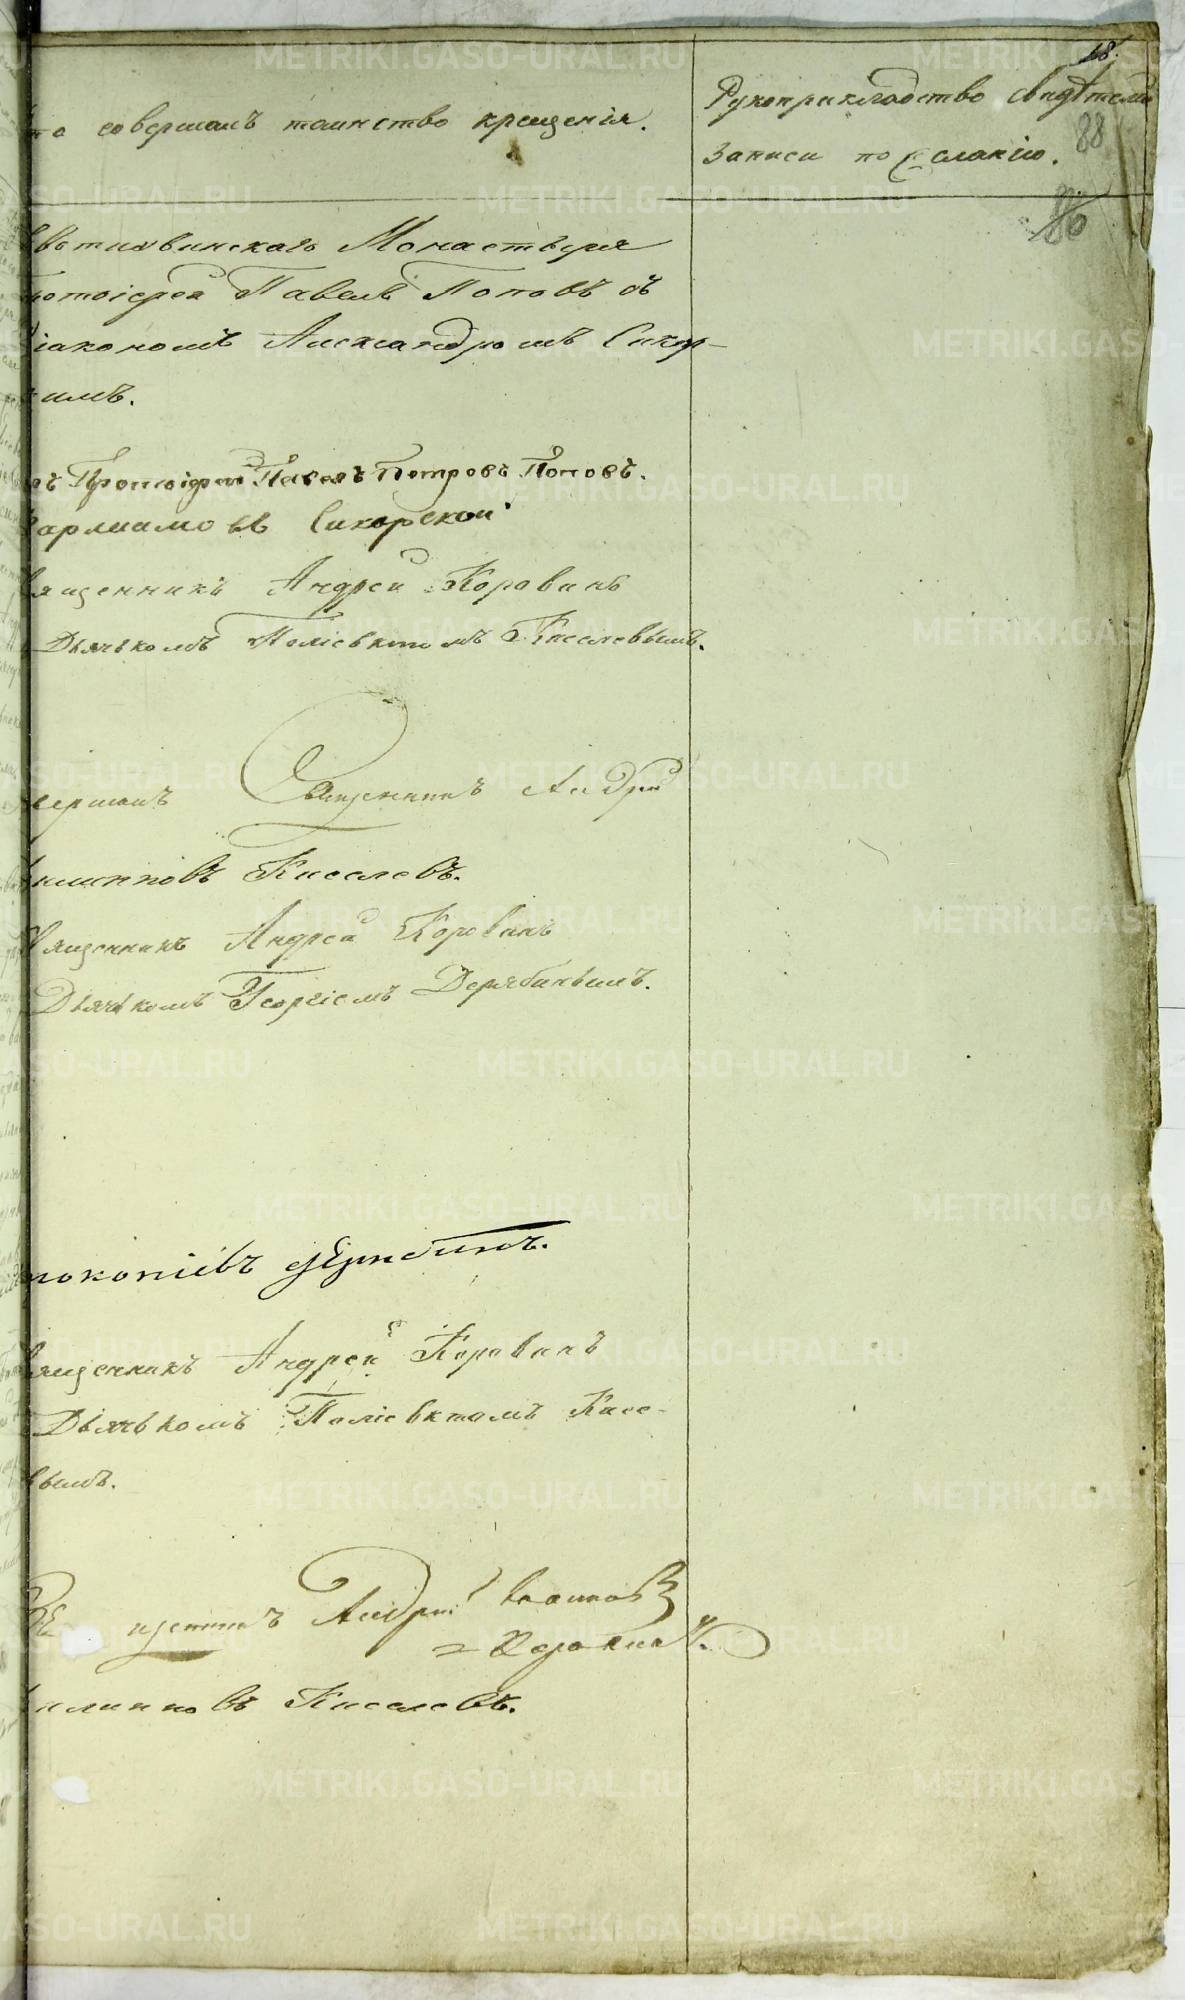 18.
то совершалъ таинство крещенія.
Рукоприкладство свидѣтелей
записи по желанію.
88
86
Новотихвинскаго Монастыря
ротоіерей Павелъ Поповъ съ
Діакономъ Александромъ Сикор-
кимъ.
Протоіерей Павелъ Петровъ Поповъ.
Варлаамовъ Сикорской
вященникъ Андрей Коровинъ
Дьячькомъ Поліевктомъ Киселевымъ.
вершалъ Священникъ Андрей
илипповъ Киселевъ.
вященникъ Андрей Коровинъ
Дьячькомъ Георгіемъ Дерябинымъ.
рокопіевъ Дерябинъ.
вященникъ Андрей Коровинъ
Дьячькомъ Поліевктомъ Кисе-
вымъ.
Андрей
Коровинъ.
илипповъ Киселевъ.
METRIKI.GASO-URAL.RU